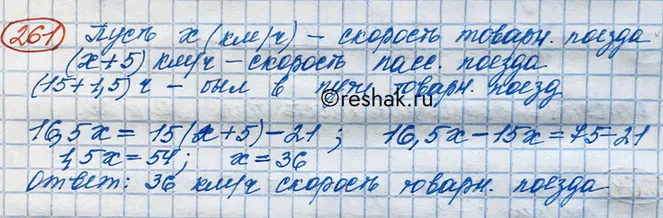 261 Пусть x (км/ч) – скорость товарн. поезда
(x+5) км/ч – скорость пасс. поезда
(15+1,5) ч – был в пути товарн. поезд
©reshak.ru
16,5x = 15(x+5)-21 ; 16,5x-15x=75-21
1,5x=54; x=36
Ответ: 36 км/ч скорость товарн. поезда